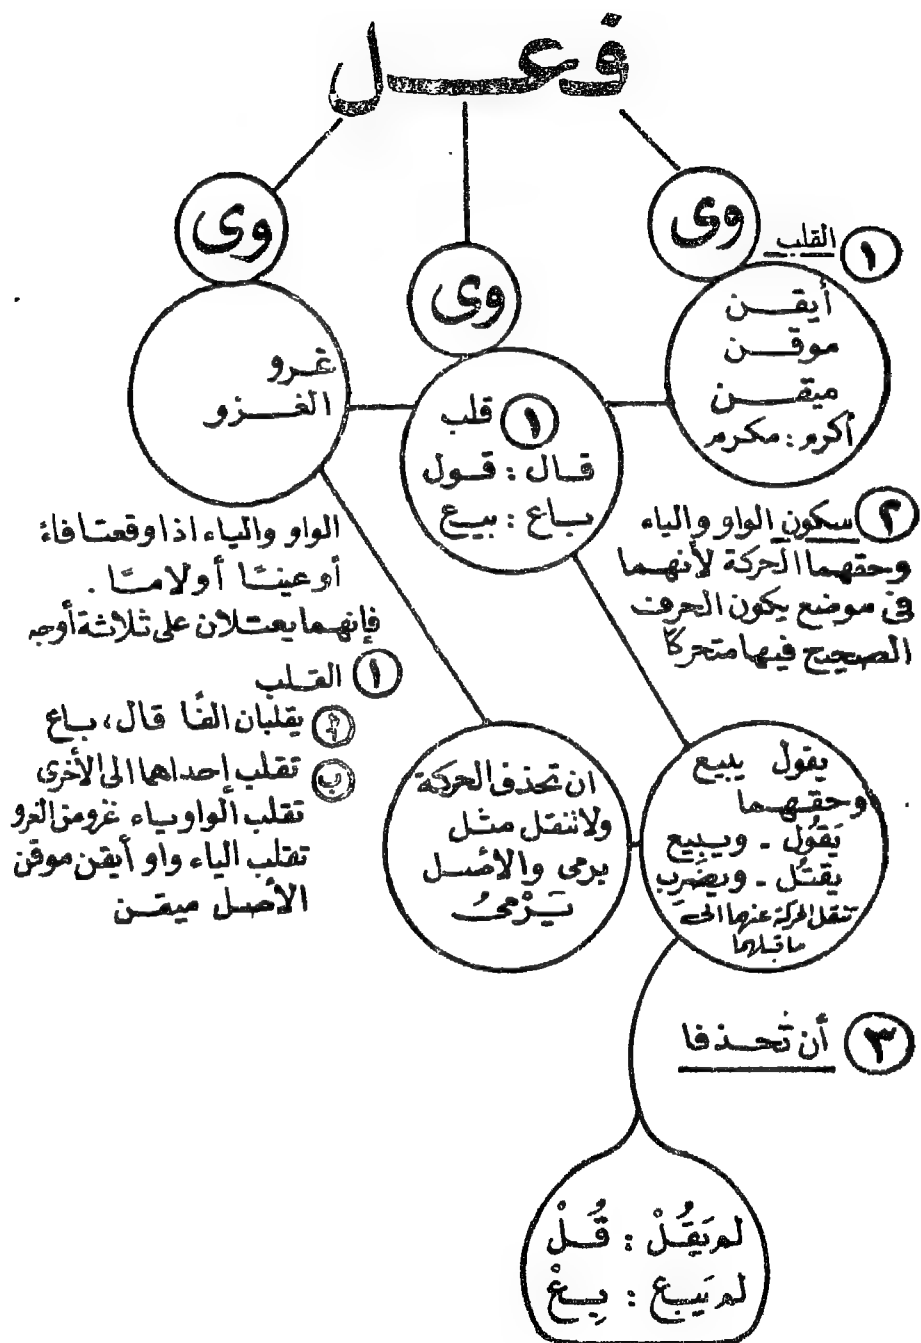 فعل
وى
وى
وى
١ القلب
أيقن
موقن
ميقن
أكرم : مكرم
١ قلب
قال : قول
باع : بيع
غزو
الغزو
٢ سكون الواو والياء
وحقهما الحركة لأنهما
فى موضع يكون الحرف
الصحيح فيها متحركاً
الواو والياء اذا وقعتا فاءً
أو عيناً أو لاماً .
فإنهما يعتلان على ثلاثة أوجه
١ القلب
أ يقلبان الفاً قال ، باع
ب تقلب إحداهما الى الأخرى
تقلب الواو ياء غزو من الغزو
تقلب الياء واو أيقن موقن
الأصل ميقن
يقول يبيع
وحقهما
يَقُوُل ـ ويبيع
يقتُل ـ ويضرِب
تنقل الحركة عنهما الى
ما قبلهما
ان تحذف الحركة
ولا تنقل مثل
يرمى والأصل
يَرْمىُ
٣ أن تُحذفا
لم يَقُلْ : قُلْ
لم يَبِع : بِعْ